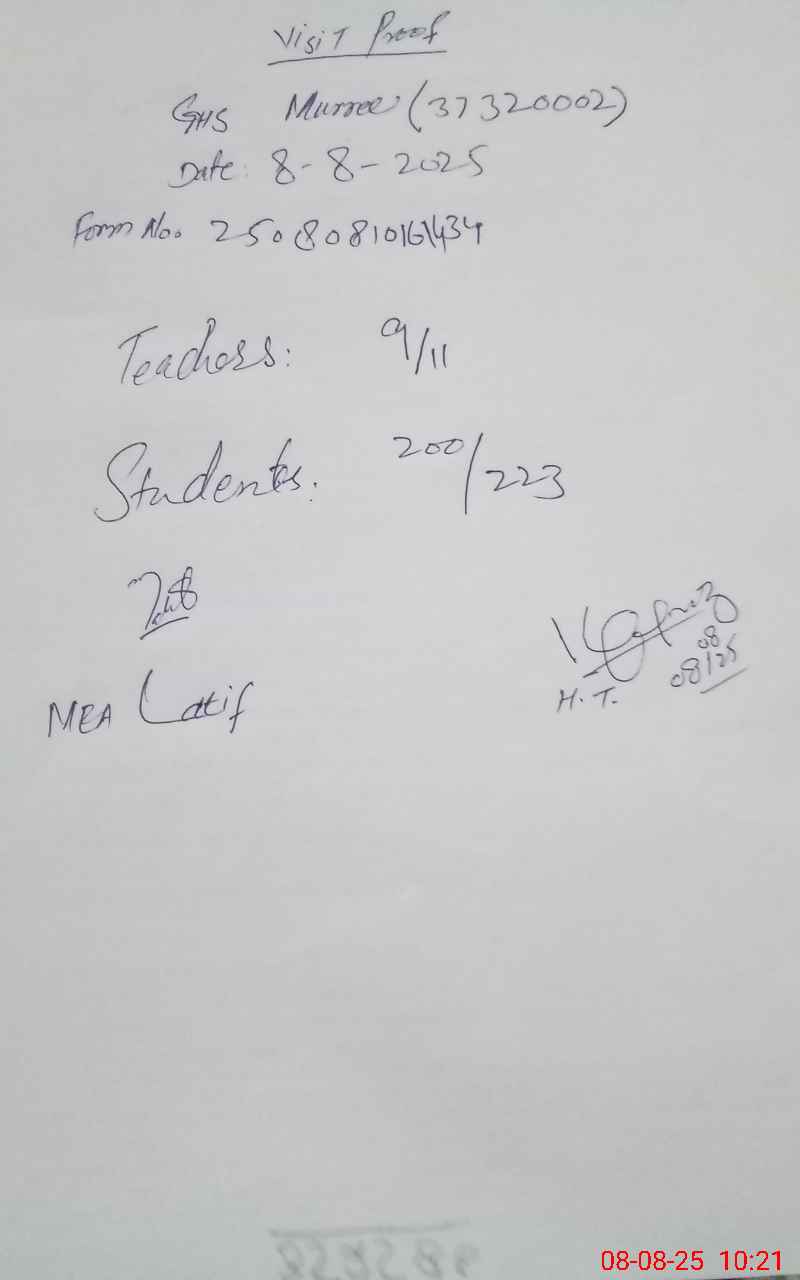 Visit Proof
GHS Murree (37320002)
Date: 8-8-2025
Form No. 25080810161434
Teachers: 9/11
Students: 200/223
MEA Latif
H.T.
08
08/25
08-08-25 10:21